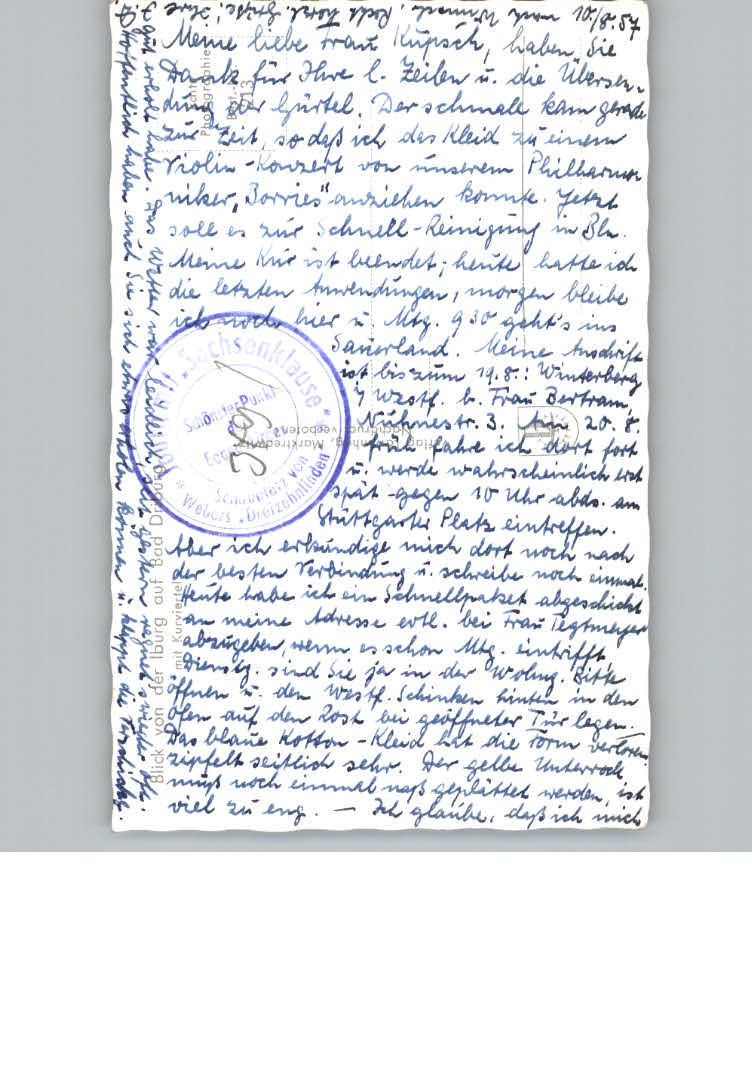 10./8.57
Meine liebe Frau Kupsch, haben Sie
Dank für Ihre l. Zeilen u. die Übersen-
dung der Gürtel. Der schmale kam gerade
zur Zeit, so daß ich das Kleid zu einem
Violin-Konzert von unserem Philharmo-
niker "Borries" anziehen konnte. Jetzt
soll es zur Schnell-Reinigung in Bln.
Meine Kur ist beendet; heute hatte ich
die letzten Anwendungen, morgen bleibe
ich noch hier u. Mtg. 9 30 geht's ins
Sauerland. Meine Anschrift
ist bis zum 19.8.: Winterberg
i/Wstf. b. Frau Bertram,
Nuhnestr. 3. Am 20. 8.
früh fahre ich dort fort
u. werde wahrscheinlich erst
spät - gegen 10 Uhr abds. am
Stuttgarter Platz eintreffen.
Aber ich erkundige mich dort noch nach
der besten Verbindung u. schreibe noch einmal.
Heute habe ich ein Schnellpaket abgeschickt
an meine Adresse evtl. bei Frau Tegtmeyer
abzugeben, wenn es schon Mtg. eintrifft,
Dienstg. sind Sie ja in der Wohng. Bitte
öffnen u. den Westf. Schinken hinten in den
Ofen auf den Rost bei geöffneter Tür legen.
Das blaue Kotton-Kleid hat die Form verloren,
zipfelt seitlich sehr. Der gelbe Unterrock
muß noch einmal naß geplättet werden, ist
viel zu eng. — Ich glaube, daß ich mich
gut erholt habe. Das Wetter war leidlich, seit gestern regnet's wieder oft.
Hoffentlich haben auch Sie sich etwas erholen können u. klappt die
Grüße! Ihre
Sachsenklause
Schönster Punkt
Schauplatz von
Webers "Dreizehnlinden"
Blick von der Iburg auf Bad Driburg
mit Kurviertel
Photographie
Best.-
213
Nachdruck verboten